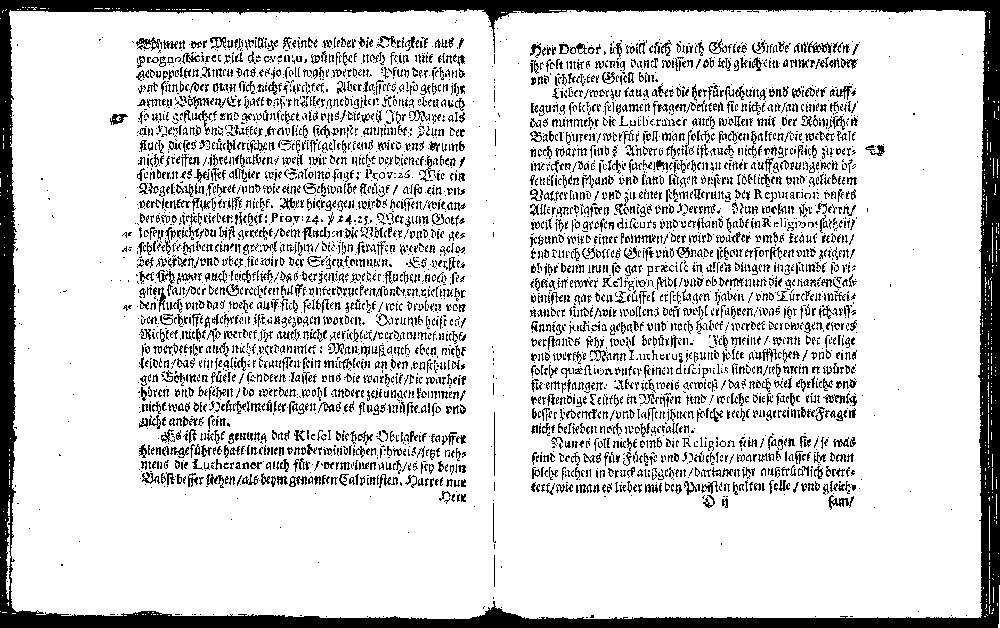 Böhmen vor Muthwillige Feinde wieder die Obrigkeit aus /
prognosticiret viel de eventu, wünschet noch sein mit einen
geduppelten Amen das es so soll wahr werden. Pfun der schand
vnd sünde / der man sich nicht fürchtet. Aber lassets also gehen ihr
armen Böhmen / Er hatt vnsern Allergnedigsten König eben auch
so mit gefluchet vnd gewünschet als vns / dieweil Ihr Maye: als
ein Heyland vnd Vatter trewlich sich vnser annimbt: Nun der
fluch dieses Heuchlerischen Schrifftgelehrtens wird vns drumb
nicht treffen / ihrenthalben / weil wir den nicht verdienet haben /
sondern es heisset alhier wie Salomo sagt: Prov: 26. Wie ein
Vogel dahin fehret / vnd wie eine Schwalbe fleugt / also ein vn-
verdienter fluch trifft nicht. Aber hiergegen wirds heissen / wie an-
derswo geschrieben stehet: Prov: 24. ỳ 24. 25. Wer zum Gott-
losen spricht / du bist gerecht / dem fluchen die Völcker / vnd die ge-
schlechte haben einen grewel an ihm / die ihn straffen werden gelo-
bet werden / vnd vber sie wird der Segen kommen. Es verste-
het sich zwar auch leichtlich / das derjenige weder fluchen noch se-
gnen kan / der den Gerechten hilfft vnterdrucken / sondern viel mehr
den fluch vnd das wehe auff sich selbsten zeücht / wie droben von
den Schrifftgelehrten ist angezogen worden. Darumb heist es /
Richtet nicht / so werdet ihr auch nicht gerichtet / verdammet nicht /
so werdet ihr auch nicht verdammet: Man muß auch eben nicht
leiden / das ein jeglicher draussen sein müthlein an den vnschuldi-
gen Böhmen küele / sondern lasset vns die warheit / die warheit
hören vnd besehen / do werden wohl andere zeitungen kommen /
nicht was die Heüchelmeüler sagen / das es flugs müste also vnd
nicht anders sein.
Es ist nicht genung das Klesel die hohe Obrigkeit tapffer
hienein geführet hatt in einen vnvberwindlichen schweis / jetzt neh-
mens die Lutheraner auch für / vermeinen auch / es sey beym
Babst besser stehen / als beym genanten Calvinisten. Harret nur
Herr
Herr Doktor, ich will eüch durch Gottes Gnade antworten /
ihr solt mirs wenig danck wissen / ob ich gleich ein armer / elender
vnd schlechter Gesell bin.
Lieber / worzu taug aber die herfürsuchung vnd wieder auff-
legung solcher selzamen fragen / deüten sie nicht an / an einen theil /
das nunmehr die Lutheraner auch wollen mit der Römischen
Babel huren / wofür soll man solche sachen halten / die weder kalt
noch warm sind? Anders theils ist auch nicht vngreiflich zu ver-
mercken / das solche sachen geschehen zu einer auffgedrungenen öf-
fentlichen schand vnd land lügen vnsern löblichen vnd geliebtem
Vatterland / vnd zu einer schmellerung der Reputation vnsers
Allergnedigsten Königs vnd Herrns. Nun wolan ihr Herrn /
weil ihr so grosen discurs vnd verstand habt in Religion sachen /
jetzund wird einer kommen / der wird wacker vmbs kraut reden /
vnd durch Gottes Geist vnd Gnade schon erforschen vnd zeigen /
ob ihr denn nun so gar præcise in allen dingen ingesambt so ri-
chtig in ewrer Religion seidt / vnd ob denn nun die genanten Cal-
vinisten gar den Teüffel erschlagen haben / vnd Türcken mitei-
nander sindt / wir wollens den wohl erfahren / was ihr für scharff-
sinnige judicia gehabt vnd noch habet / werdet derowegen ewres
verstands sehr wohl bedürffen. Ich meine / wenn der seelige
vnd werthe Mann Lutherus jetzund solte aufstehen / vnd eins
solche quæstion vnter seinen discipulis finden / ich mein er würde
sie empfangen. Aber ich weis gewieß / das noch viel ehrliche vnd
verstendige Leüthe in Meissen sind / welche diese sache ein wenig
besser bedencken / vnd lassen ihnen solche recht vngereimbte Fragen
nicht belieben noch wohlgefallen.
Nun es soll nicht vmb die Religion sein / sagen sie / je was
seind doch das für Füchse vnd Heüchler / warumb lasset ihr denn
solche sachen in druck außgehen / darinnen ihr außtrücklich örter-
tert / wie man es lieber mit den Papisten halten solle / vnd gleich-
D ij
sam /